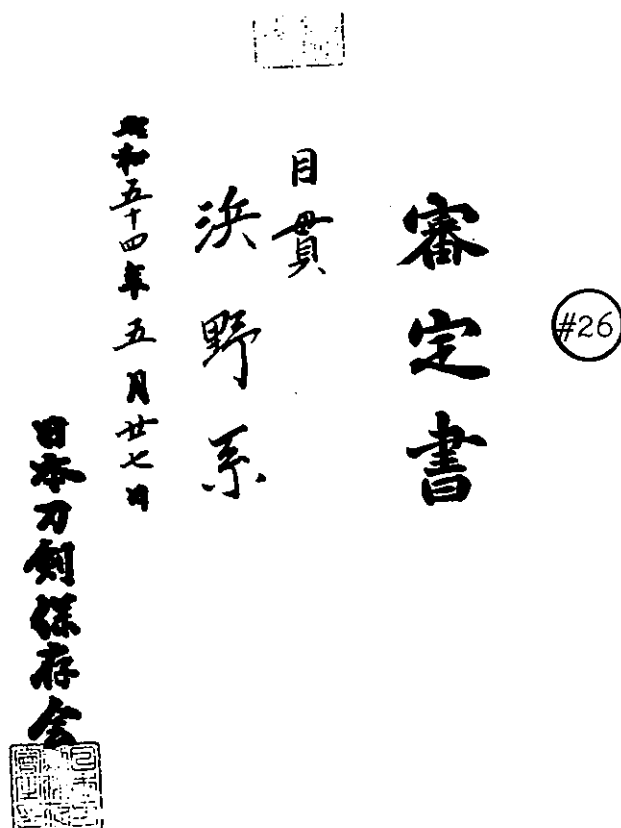 #26
審定書
目貫
浜野系
昭和五十四年五月廿七日
日本刀剣保存会